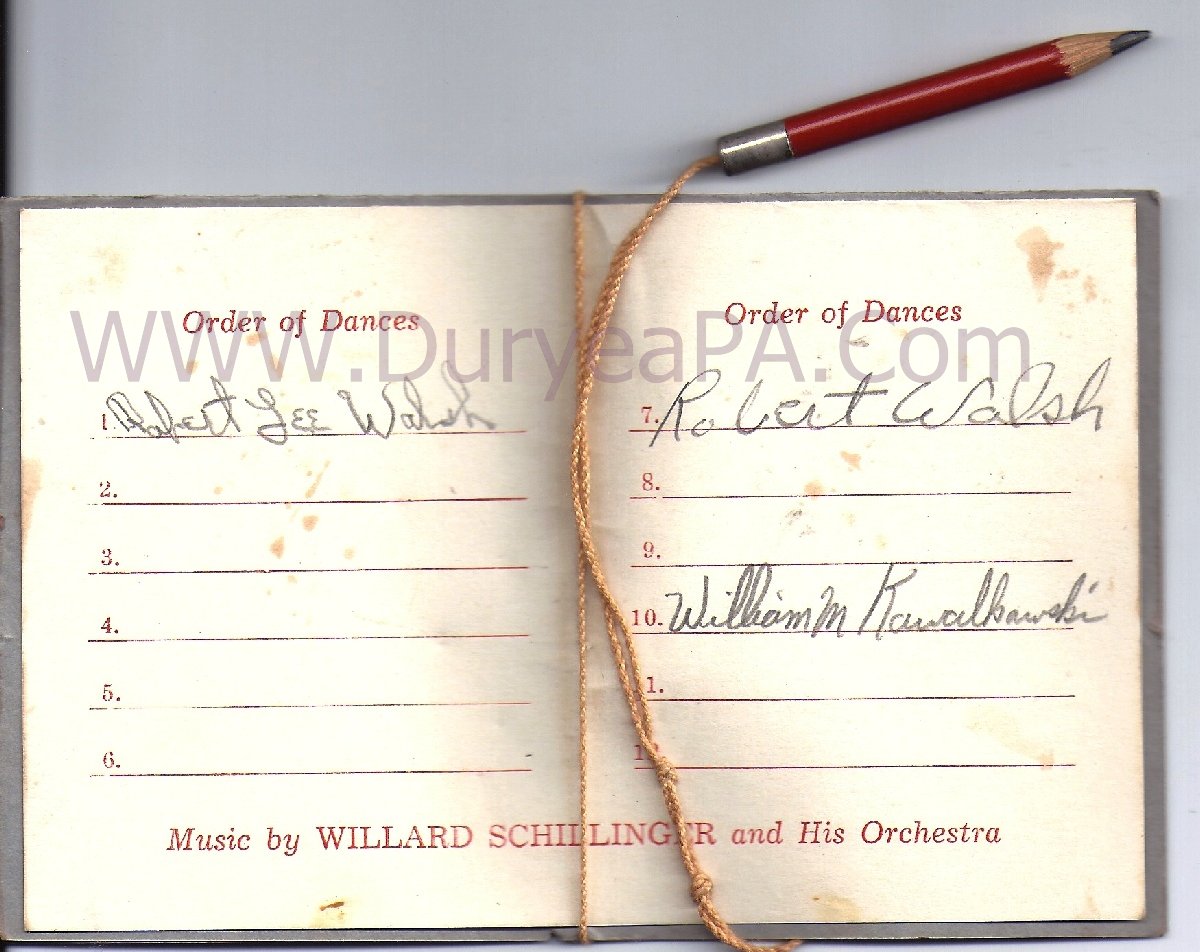 WWW.DuryeaPA.Com
Order of Dances
1. Robert Lee Walsh
2.
3.
4.
5.
6.
Order of Dances
7. Robert Walsh
8.
9.
10. William M Kawalkawski
11.
1
Music by WILLARD SCHILLINGER and His Orchestra